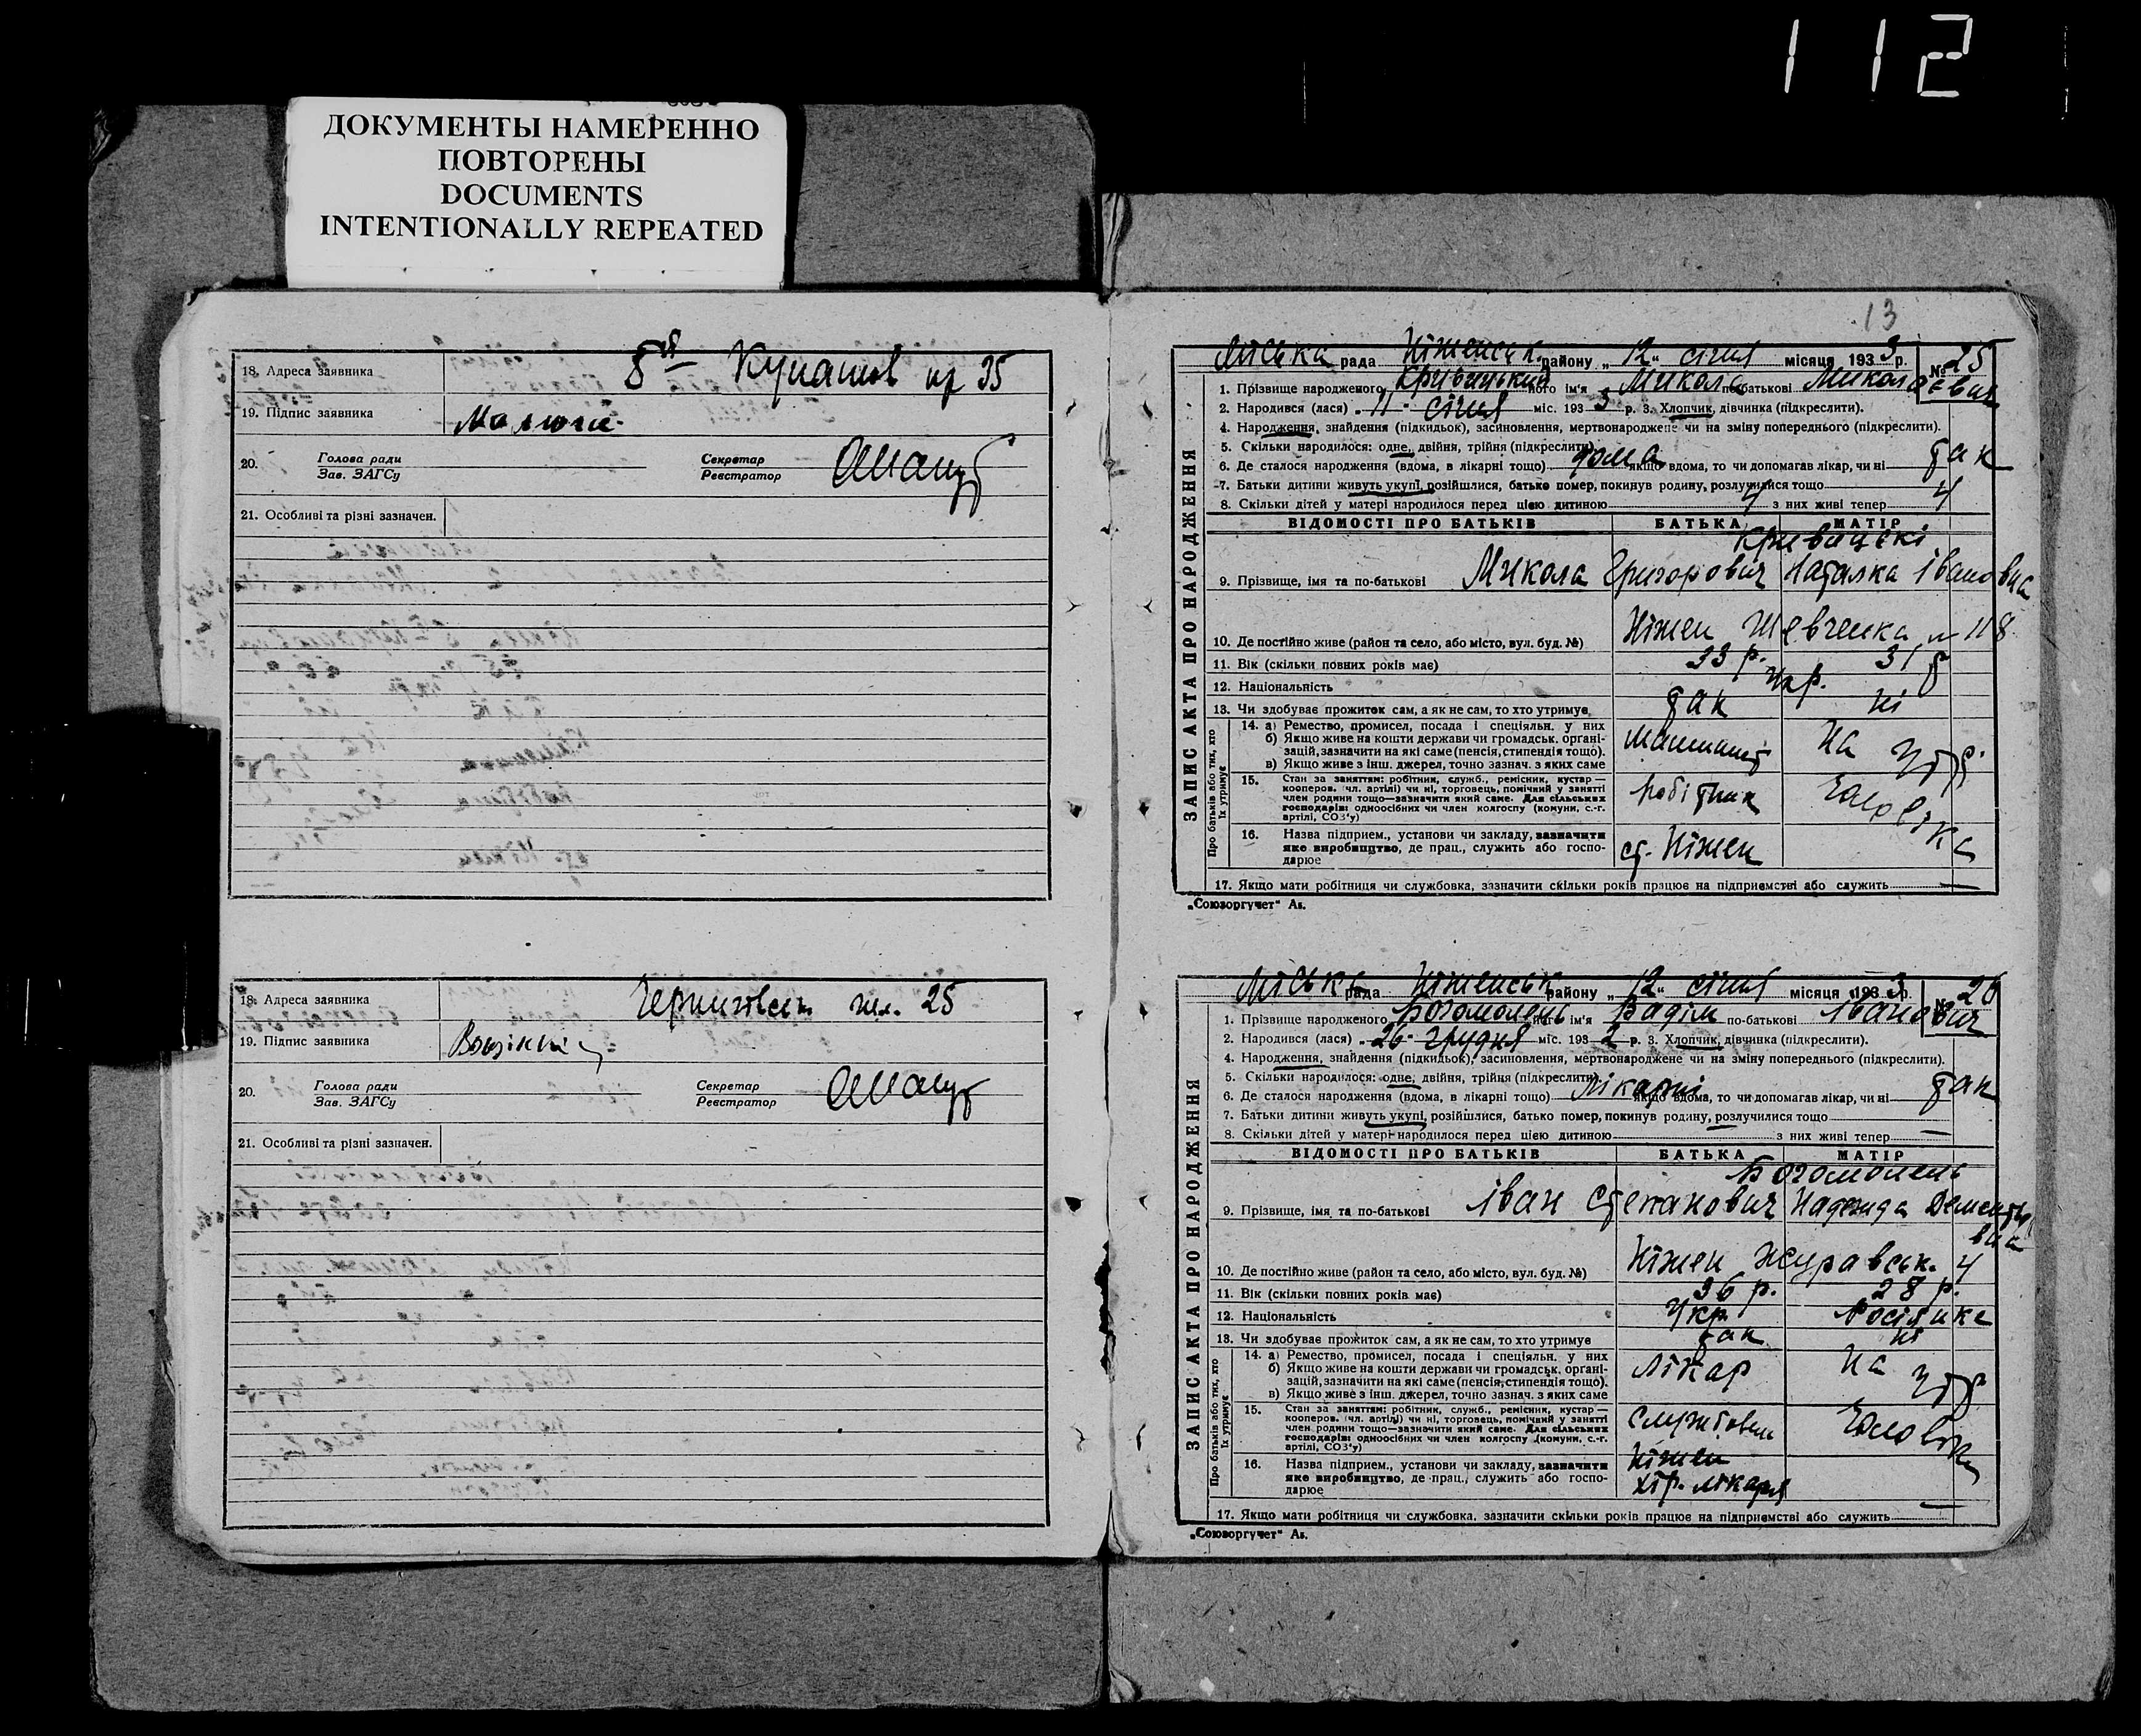 112
ДОКУМЕНТЫ НАМЕРЕННО
ПОВТОРЕНЫ
DOCUMENTS
INTENTIONALLY REPEATED
18. Адреса заявника 8ᵃ Купашов 35
19. Підпис заявника
20. Голова ради
Зав. ЗАГСу
Секретар
Реєстратор
21. Особливі та різні зазначен.
18. Адреса заявника 25
19. Підпис заявника
20. Голова ради
Зав. ЗАГСу
Секретар
Реєстратор
21. Особливі та різні зазначен.
13
ЗАПИС АКТА ПРО НАРОДЖЕННЯ
Міська рада Ніженськ. району „12“ січня місяця 1933 р. № 25
1. Прізвище народженого Кривицький його ім'я Микола по-батькові Миколаєвич
2. Народився (лася) 11 січня міс. 1933 р. 3. Хлопчик, дівчинка (підкреслити).
4. Народження, знайдення (підкидьок), засиновлення, мертвонароджене чи на зміну попереднього (підкреслити).
5. Скільки народилося: одне, двійня, трійня (підкреслити)
6. Де сталося народження (вдома, в лікарні тощо) дома якщо вдома, то чи допомагав лікар, чи ні так
7. Батьки дитини живуть укупі, розійшлися, батько помер, покинув родину, розлучилися тощо
8. Скільки дітей у матері народилося перед цією дитиною 4 з них живі тепер 4
ВІДОМОСТІ ПРО БАТЬКІВ БАТЬКА МАТІР
Кривицькі
9. Прізвище, імя та по-батькові Микола Григорович Наталка Івановна
10. Де постійно живе (район та село, або місто, вул. буд. №) Ніжен Шевченка 118
11. Вік (скільки повних років має) 33 р. 31 р
12. Національність Укр.
13. Чи здобуває прожиток сам, а як не сам, то хто утримує так ні
Про батьків або тих, хто їх утримує
14. а) Ремество, промисел, посада і спеціяльн. у них
б) Якщо живе на кошти держави чи громадськ. органі-
зацій, зазначити на які саме (пенсія, стипендія тощо).
в) Якщо живе з інш. джерел, точно зазнач. з яких саме
машиніст на утр.
15. Стан за заняттям: робітник, служб., ремісник, кустар—
кооперов. (чл. артілі) чи ні, торговець, помічний у занятті
член родини тощо—зазначити який саме. Для сільських
господарів: одноосібних чи член колгоспу (комуни, с.-г.
артілі, СОЗ'у)
робітник чоловіка
16. Назва підприєм., установи чи закладу, зазначити
яке виробництво, де прац., служить або госпо-
дарює
ст. Ніжен
17. Якщо мати робітниця чи службовка, зазначити скільки років працює на підприємстві або служить —
„Союзоргучет“ Ав.
ЗАПИС АКТА ПРО НАРОДЖЕННЯ
Міська рада Ніженськ району „12“ січня місяця 1933 р. № 26
1. Прізвище народженого Богомолець його ім'я Вадім по-батькові Іванович
2. Народився (лася) 26 грудня міс. 1932 р. 3. Хлопчик, дівчинка (підкреслити).
4. Народження, знайдення (підкидьок), засиновлення, мертвонароджене чи на зміну попереднього (підкреслити).
5. Скільки народилося: одне, двійня, трійня (підкреслити)
6. Де сталося народження (вдома, в лікарні тощо) лікарні якщо вдома, то чи допомагав лікар, чи ні так
7. Батьки дитини живуть укупі, розійшлися, батько помер, покинув родину, розлучилися тощо
8. Скільки дітей у матері народилося перед цією дитиною — з них живі тепер —
ВІДОМОСТІ ПРО БАТЬКІВ БАТЬКА МАТІР
Богомолець
9. Прізвище, імя та по-батькові Іван Степанович Надежда Дементьевна
10. Де постійно живе (район та село, або місто, вул. буд. №) Ніжен Журавськ. 4
11. Вік (скільки повних років має) 36 р. 28 р.
12. Національність Укр Росіянка
13. Чи здобуває прожиток сам, а як не сам, то хто утримує так ні
Про батьків або тих, хто їх утримує
14. а) Ремество, промисел, посада і спеціяльн. у них
б) Якщо живе на кошти держави чи громадськ. органі-
зацій, зазначити на які саме (пенсія, стипендія тощо).
в) Якщо живе з інш. джерел, точно зазнач. з яких саме
лікар на утр
15. Стан за заняттям: робітник, служб., ремісник, кустар—
кооперов. (чл. артілі) чи ні, торговець, помічний у занятті
член родини тощо—зазначити який саме. Для сільських
господарів: одноосібних чи член колгоспу (комуни, с.-г.
артілі, СОЗ'у)
службовець
16. Назва підприєм., установи чи закладу, зазначити
яке виробництво, де прац., служить або госпо-
дарює
Ніжен
хір. лікарня
17. Якщо мати робітниця чи службовка, зазначити скільки років працює на підприємстві або служить —
„Союзоргучет“ Ав.